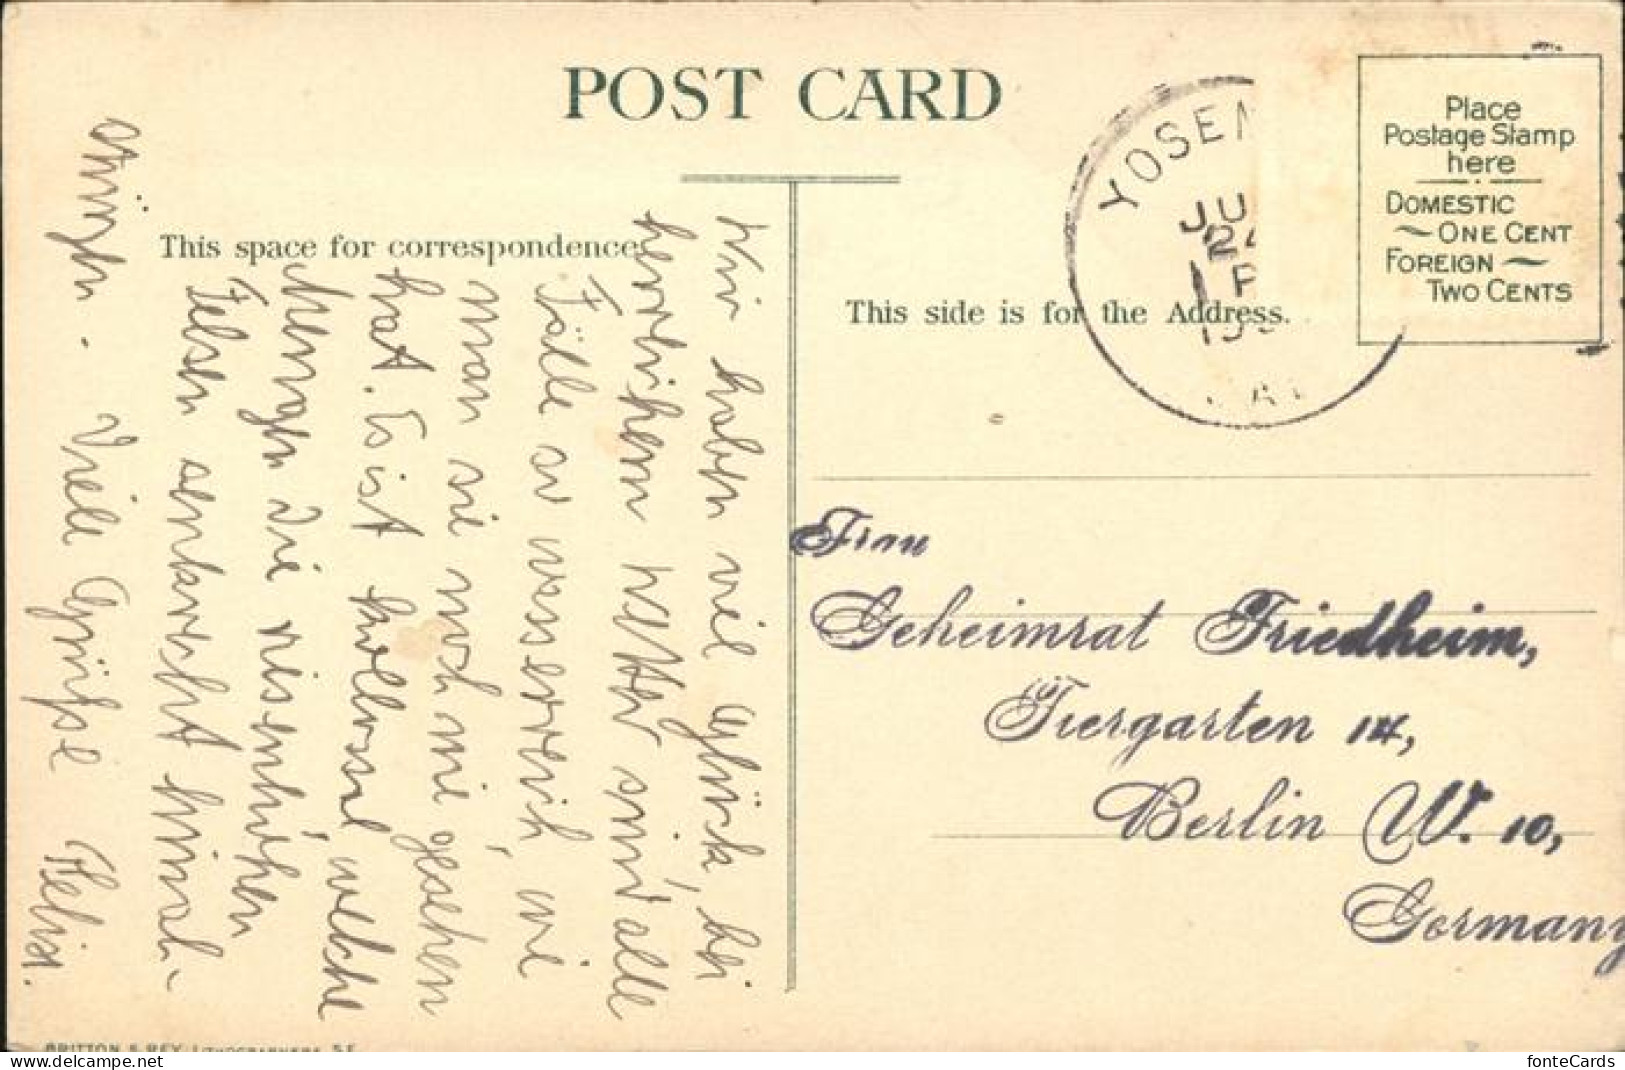 POST CARD
This space for correspondence.
This side is for the Address.
Place
Postage Stamp
here
DOMESTIC
ONE CENT
FOREIGN
TWO CENTS
YOSEM
JU
24
1 P
19
Wir haben viel Glück, bei
herrlichem Wetter sind alle
Fälle so wasserreich, wie
man sie noch nie gesehen
hat. Es ist kollossal, welche
Mengen die riesenhohen
Felsen senkrecht hinab-
stürzen. Viele Grüsse Helia.
Frau
Geheimrat Friedheim,
Tiergarten 14,
Berlin W. 10,
Germany
BRITTON & REY, LITHOGRAPHERS, S.F.
fonteCards